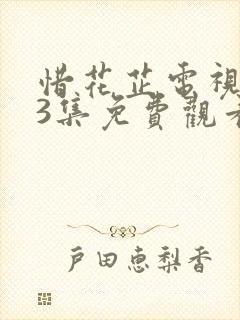 惜花芷電視
3集免費觀
戶田惠梨香